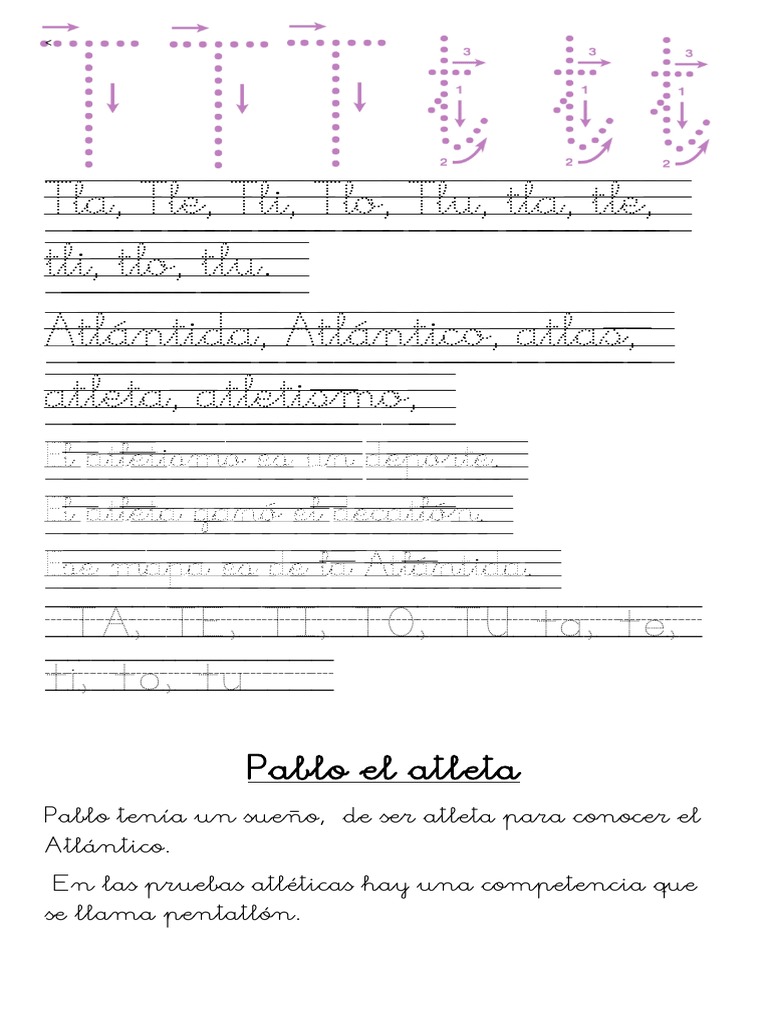 T T T t t t
3 3 3
1 1 1
2 2 2
Tla, Tle, Tli, Tlo, Tlu, tla, tle,
tli, tlo, tlu.
Atlántida, Atlántico, atlas,
atleta, atletismo,
El atletismo es un deporte.
El atleta ganó el decatlón.
Ese mapa es de la Atlántida.
TA, TE, TI, TO, TU ta, te,
ti, to, tu
Pablo el atleta
Pablo tenía un sueño, de ser atleta para conocer el
Atlántico.
En las pruebas atléticas hay una competencia que
se llama pentatlón.